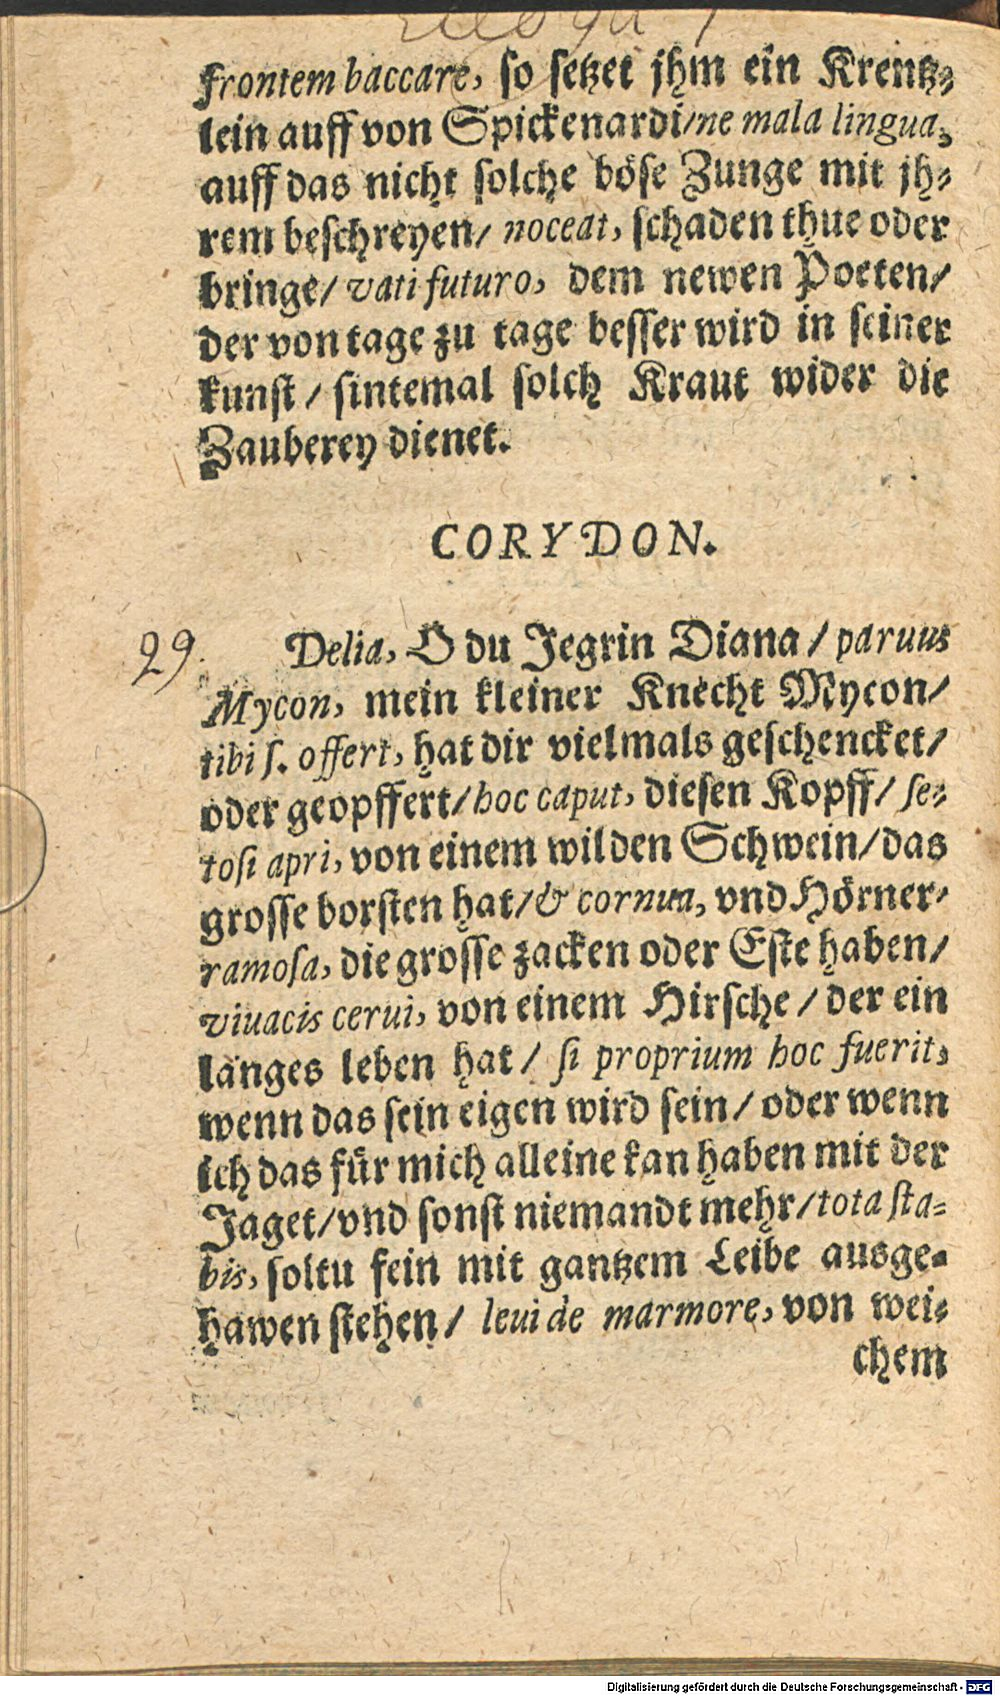 Ecloga 7
frontem baccare, so setzet jhm ein Krentz⸗
lein auff von Spickenardi/ne mala lingua,
auff das nicht solche böse Zunge mit jh⸗
rem beschreyen/ noceat, schaden thue oder
bringe/ vati futuro, dem newen Poeten/
der von tage zu tage besser wird in seiner
kunst / sintemal solch Kraut wider die
Zauberey dienet.
CORYDON.
29. Delia, O du Jegrin Diana / paruus
Mycon, mein kleiner Knecht Mycon/
tibi s. offert, hat dir vielmals geschencket/
oder geopffert/hoc caput, diesen Kopff/ se⸗
tosi apri, von einem wilden Schwein/das
grosse borsten hat/& cornua, vnd Hörner⸗
ramosa, die grosse zacken oder Este haben/
viuacis cerui, von einem Hirsche / der ein
langes leben hat / si proprium hoc fuerit,
wenn das sein eigen wird sein/ oder wenn
ich das für mich alleine kan haben mit der
Jaget/vnd sonst niemandt mehr/tota sta⸗
bis, soltu fein mit gantzem Leibe ausge⸗
hawen stehen/ leui de marmore, von wei⸗
chem
Digitalisierung gefördert durch die Deutsche Forschungsgemeinschaft - DFG